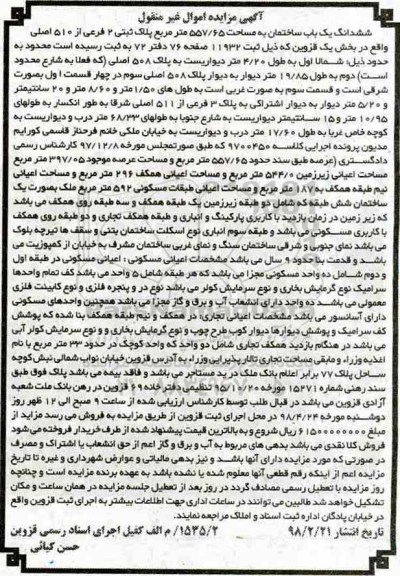 آگهی مزایده اموال غیر منقول
ششدانگ یک باب ساختمان به مساحت ۵۵۷/۶۵ متر مربع پلاک ثبتی ۲ فرعی از ۵۱۰ اصلی
واقع در بخش یک قزوین که ذیل ثبت ۱۱۹۳۲ صفحه ۷۶ دفتر ۷۲ به ثبت رسیده است محدود به
حدود ذیل: شمالا اول به طول ۴/۲۰ متر دیواریست به پلاک ۵۰۸ اصلی (که فعلا به شارع محدود
است) دوم به طول ۱۹/۸۵ متر دیوار به دیوار پلاک ۵۰۸ اصلی سوم در چهار قسمت اول بصورت
شرقی است و قسمت سوم به صورت غربی است به طول های ۱/۵۰متر و ۸/۶۰ متر و ۲۰ سانتیمتر
و ۵/۲۰ متر دیوار به دیوار اشتراکی به پلاک ۳ فرعی از ۵۱۱ اصلی شرقا به طور انکسار به طولهای
۱۰/۹۵ متر و ۱۵ سانتیمتر دیواریست به شارع جنوبا به طولهای ۶۸/۳۳ متر درب و دیواریست به
کوچه خاص غربا به طول ۱۷/۶۰ متر درب و دیواریست به خیابان ملکی خانم فرحناز قاسمی کورایم
مدیون پرونده اجرایی کلاسه ۹۷۰۰۴۵۰ که طبق صورتمجلس مورخه ۹۷/۱۲/۸ کارشناس رسمی
دادگستری (عرصه طبق سند حدود ۵۵۷/۶۵ متر مربع و مساحت عرصه موجود ۳۹۷/۰۵ متر مربع
مساحت اعیانی زیرزمین ۵۴۴/۰ متر مربع و مساحت اعیانی همکف ۲۹۶ متر مربع و مساحت اعیانی
نیم طبقه همکف به ۱۸۷ متر مربع و مساحت اعیانی طبقات مسکونی ۵۹۲ متر مربع ملک بصورت یک
ساختمان شش طبقه که شامل دو طبقه زیرزمین یک طبقه همکف و سه طبقه روی همکف می باشد
که زیر زمین در زمان بازدید با کاربری پارکینگ و انباری و طبقه همکف تجاری و دو طبقه روی همکف
با کاربری مسکونی می باشد و طبقه سوم انباری نوع اسکلت ساختمان بتنی و سقف ها تیرچه بلوک
می باشد نمای جنوبی و شرقی ساختمان سنگ و نمای غربی ساختمان مشرف به خیابان از کمپوزیت می
باشد و قدمت با حدود ۹ سال می باشد مشخصات اعیانی مسکونی: اعیانی مسکونی در طبقه اول
و دوم شامل ده واحد مسکونی مجزا می باشد که هر طبقه شامل ۵ واحد می باشد کف تمام واحدها
سرامیک نوع گرمایش بخاری و نوع سرمایش کولر می باشد نوع در و پنجره فلزی و نوع کابینت فلزی
معمولی می باشد ده واحد دارای انشعاب آب و برق و گاز مجزا می باشد همچنین واحدهای مسکونی
دارای آسانسور می باشد مشخصات اعیانی تجاری: در همکف و نیم طبقه همکف بنا شده که پوشش
کف سرامیک و پوشش دیوارها دیوار کوب طرح چوب و نوع گرمایش بخاری و نوع سرمایش کولر آبی
می باشد در هنگام بازدید همکف تجاری شامل دو واحد که واحد کوچک در حدود ۳۳ متر مربع با نام
اغذیه وزراء و مابقی مساحت تجاری تالار پذیرایی وزراء به آدرس قزوین خیابان نواب شمالی نبش کوچه
ساحل پلاک ۷۷ برابر اعلام بانک ملک در ید مستاجر می باشد و فاقد بیمه می باشد پلاک فوق طبق
سند رهنی شماره ۱۵۲۷۱ مورخه ۹۵/۱۰/۲۰ تنظیمی دفترخانه ۹۱ قزوین در رهن بانک ملت شعبه
آزادی قزوین می باشد در قبال طلب توسط کارشناس ارزیابی شده از ساعت ۹ صبح الی ۱۲ ظهر روز
دوشنبه مورخه ۹۸/۴/۲۴ در محل اجرای ثبت قزوین از طریق مزایده به فروش می رسد مزاید از
مبلغ ۶۱۵۰۰۰۰۰۰۰۰ ریال شروع و به بالاترین قیمت پیشنهاد شده از طرف خریدار فروخته می شود
فروش کلا نقدی می باشد بدهی های مربوط به آب و برق و گاز اعم از حق انشعاب یا اشتراک و مصرف
در صورتی که مورد مزایده دارای آنها باشد و نیز بدهی مالیاتی و عوارض شهرداری و غیره تا تاریخ
مزایده اعم از اینکه رقم قطعی آنها معلوم شده یا نشده باشد به عهده برنده مزایده است و چنانچه
روز مزایده با تعطیل رسمی مصادف گردد در روز بعد از تعطیل جلسه مزایده در همان ساعت و مکان
تشکیل خواهد شد طالبین می توانند در ساعات اداری جهت اطلاعات بیشتر به اجرای ثبت قزوین واقع
در خیابان پادگان اداره ثبت اسناد و املاک مراجعه نمایند.
تاریخ انتشار ۹۸/۲/۲۱ ۱۵۳۵/۲/ م الف کفیل اجرای اسناد رسمی قزوین
حسن کیائی